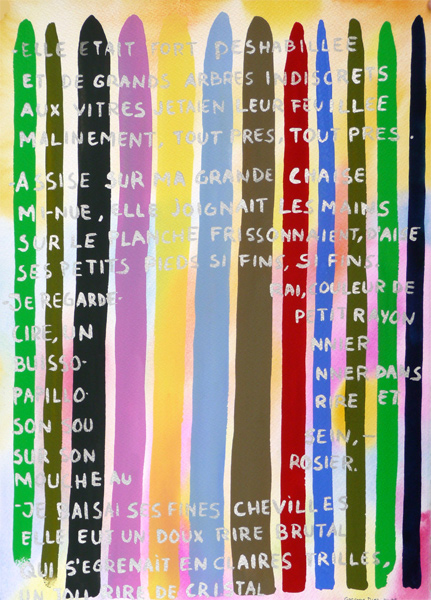 -ELLE ETAIT FORT DESHABILLEE
ET DE GRANDS ARBRES INDISCRETS
AUX VITRES JETAIEN LEUR FEUILLEE
MALINEMENT, TOUT PRES, TOUT PRES.
-ASSISE SUR MA GRANDE CHAISE
MI-NUE, ELLE JOIGNAIT LES MAINS
SUR LE PLANCHE FRISSONNAIENT, D'AISE
SES PETITS PIEDS SI FINS, SI FINS.
-JE REGARDE- RAI, COULEUR DE
PETIT RAYON
CIRE, UN NNIER
BUISSO- NNER DANS
PAPILLO RIRE ET
SON SOU
SEIN,-
SUR SON ROSIER.
MOUCHEAU
-JE BAISAI SES FINES CHEVILLES
ELLE EUT UN DOUX RIRE BRUTAL
QUI S'EGRENAIT EN CLAIRES TRILLES,
UN JOLI RIRE DE CRISTAL